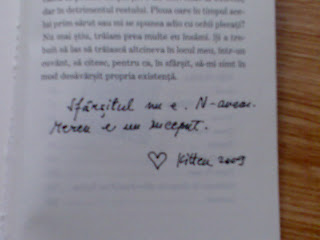 dar în detrimentul restului. Ploua oare în timpul ace-
lui prim sărut sau mi se spunea adio cu ochii plecați?
Nu mai știu, trăiam prea multe eu însămi. Și a tre-
buit să las să trăiască altcineva în locul meu, într-un
cuvânt, să citesc, pentru ca, în sfârșit, să-mi simt în
mod desăvârșit propria existență.
Sfârșitul nu e. N-avem.
Mereu e un început.
♡ Kitten 2009